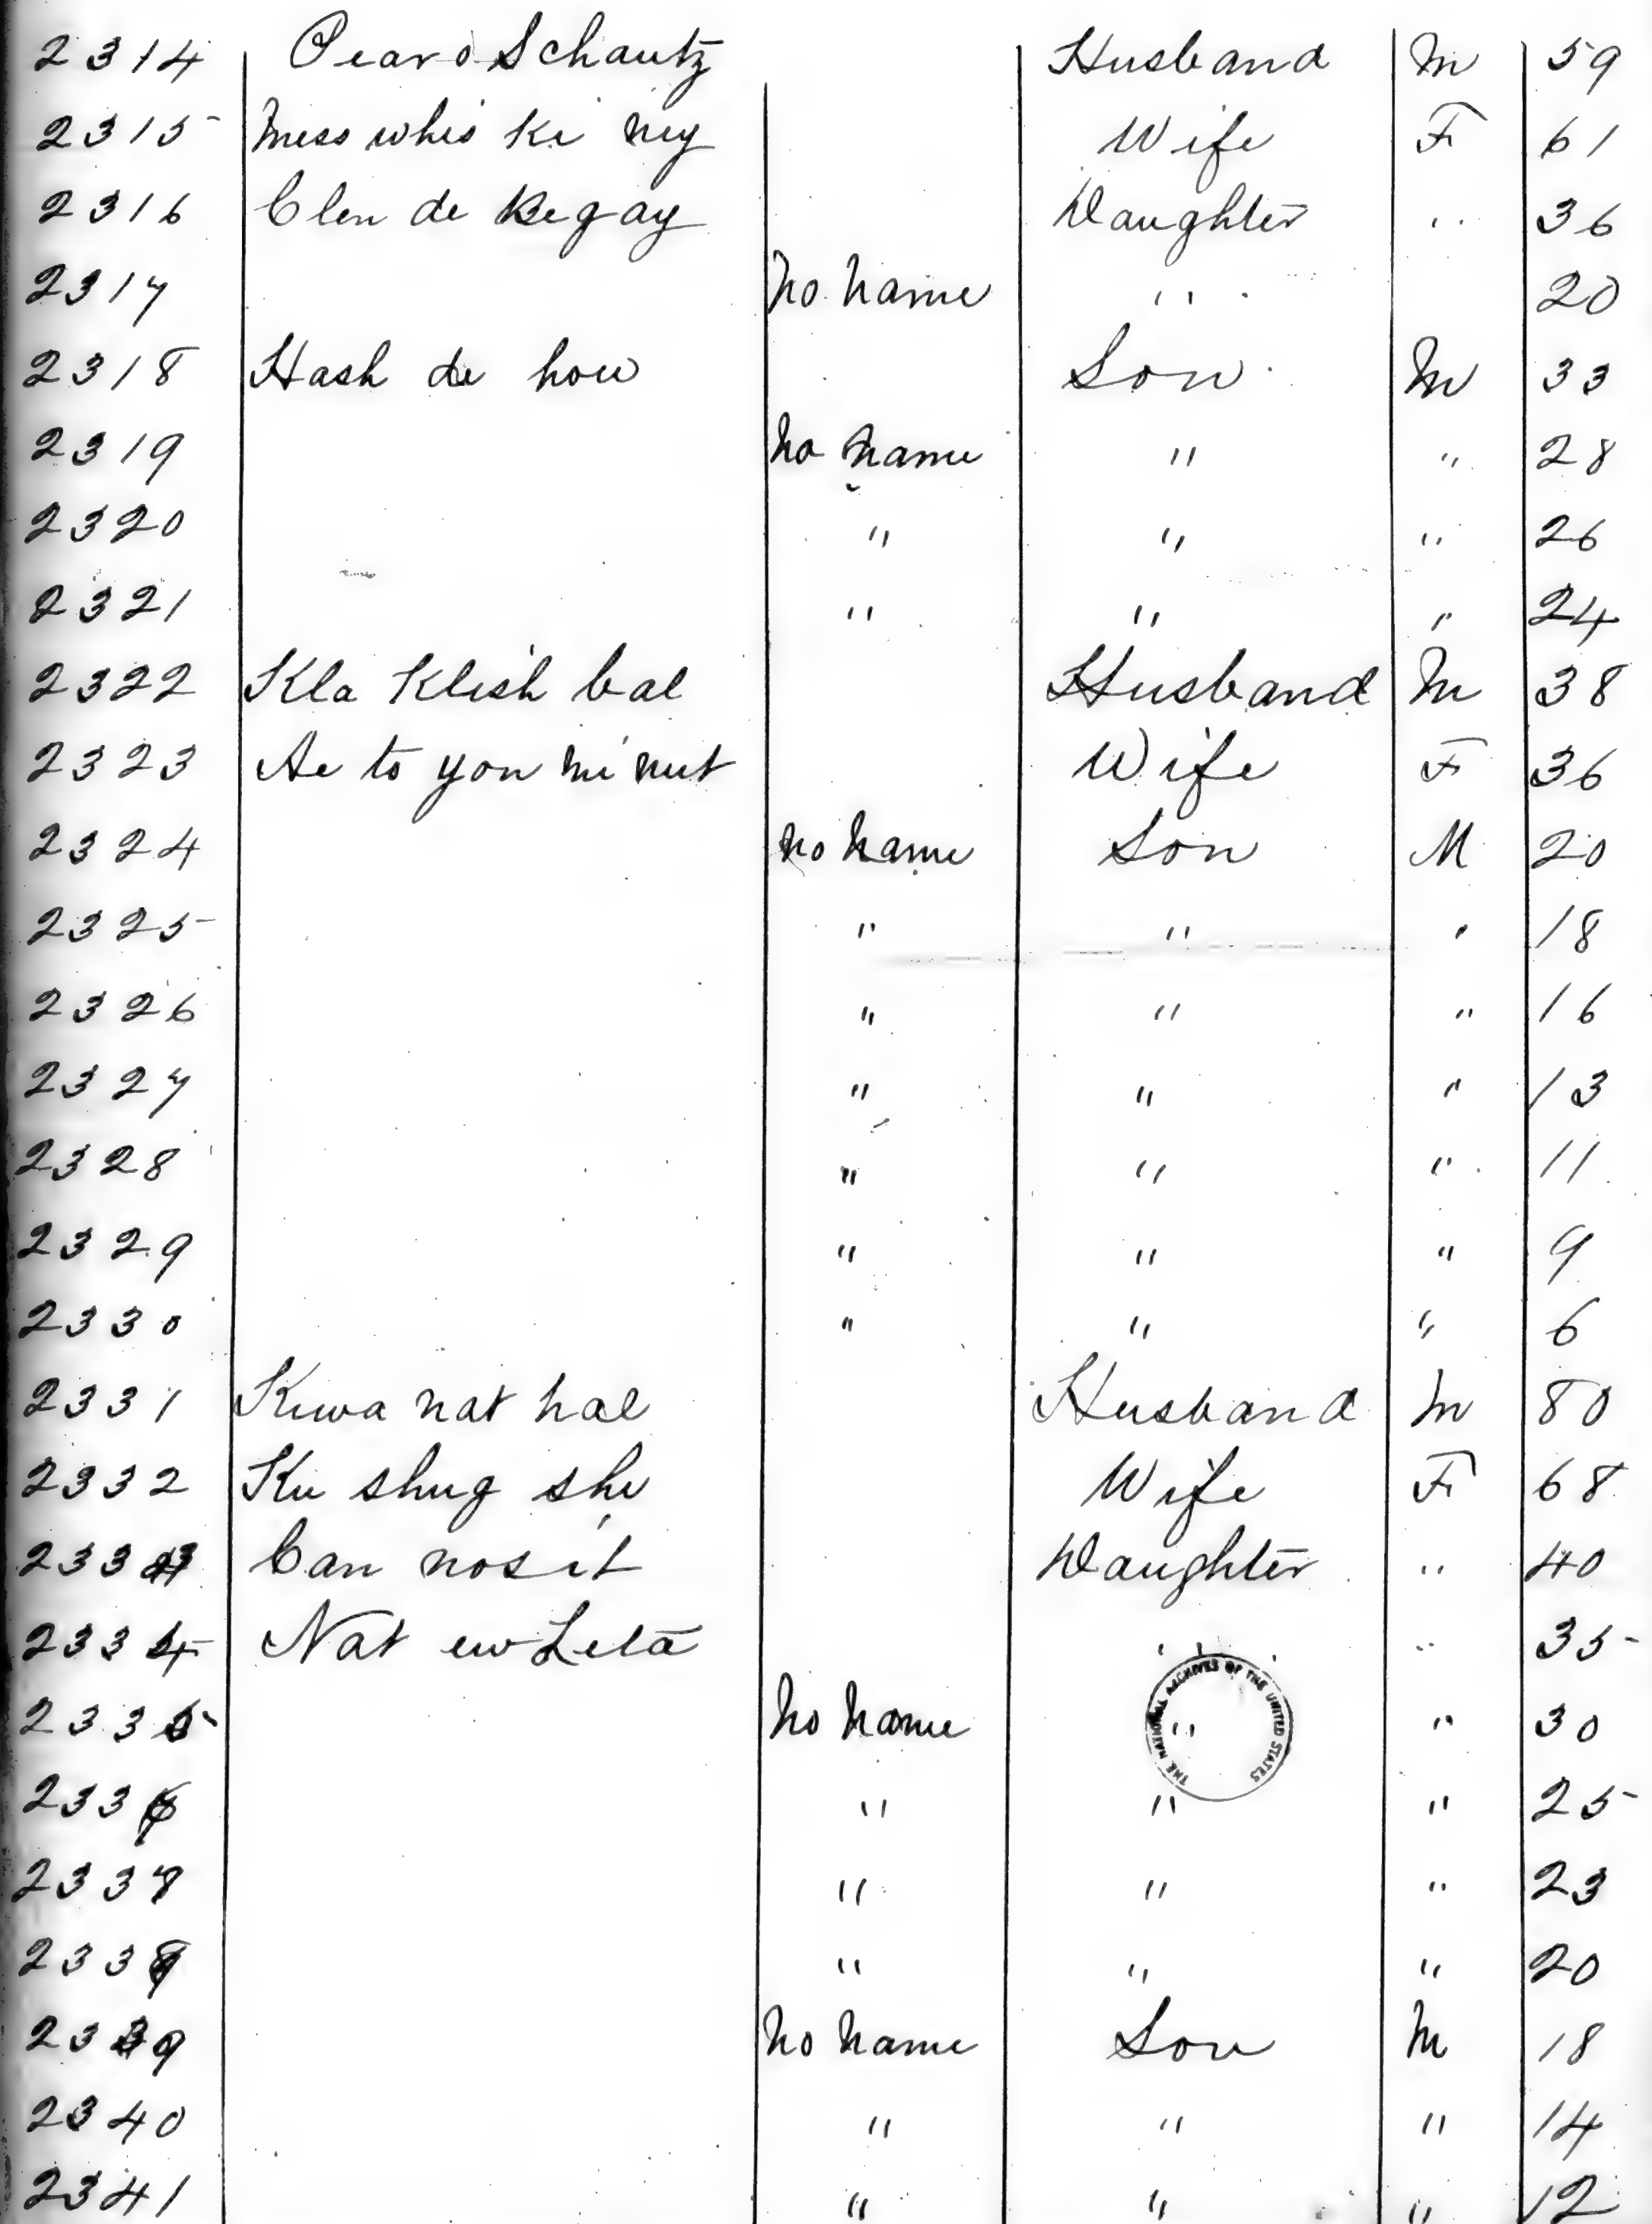 2314 Pearo Schautz Husband M 59
2315 Mess whis Ki ney Wife F 61
2316 Clen de Begay Daughter " 36
2317 No Name " 20
2318 Hash de how Son M 33
2319 No Name " " 28
2320 " " " 26
2321 " " " 24
2322 Kla Klish bal Husband M 38
2323 Ae to yon ni nut Wife F 36
2324 No Name Son M 20
2325 " " " 18
2326 " " " 16
2327 " " " 13
2328 " " " 11
2329 " " " 9
2330 " " " 6
2331 Kiwa nat hal Husband M 80
2332 Ku shug she Wife F 68
2333 Can nosit Daughter " 40
2334 Nat ew Leta " " 35
2335 No Name " " 30
THE NATIONAL ARCHIVES OF THE UNITED STATES
2336 " " " 25
2337 " " " 23
2338 " " " 20
2339 No Name Son M 18
2340 " " " 14
2341 " " " 12